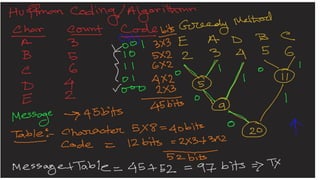 Huffman Coding/Algorithm Greedy Method
Char Count Code bits E A D B C
A 3 001 3x3 2 3 4 5 6
B 5 10 5x2
C 6 11 6x2
D 4 01 4x2
E 2 000 2x3
45 bits
0 1 0 1
5 11
0 1
9
0 1
20
Message → 45 bits
Table:- Character 5X8 = 40 bits
Code = 12 bits = 2x3+3x2
52 bits
Message + Table = 45 + 52 = 97 bits ⇒ Tx